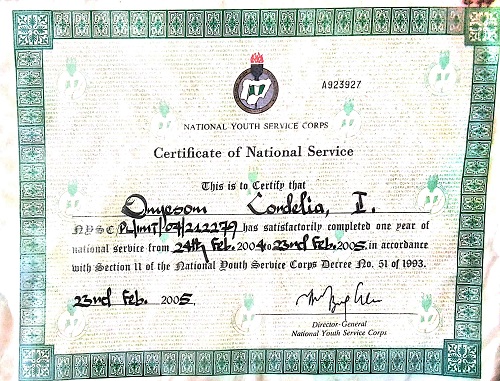 A923927
NATIONAL YOUTH SERVICE CORPS
Certificate of National Service
This is to Certify that
Onyesom Cordelia, I.
NYSC/PL/IMT/04/212279 has satisfactorily completed one year of
national service from 24th Feb. 2004 to 23rd Feb. 2005, in accordance
with Section 11 of the National Youth Service Corps Decree No. 51 of 1993.
23rd Feb. 2005.
Director-General
National Youth Service Corps